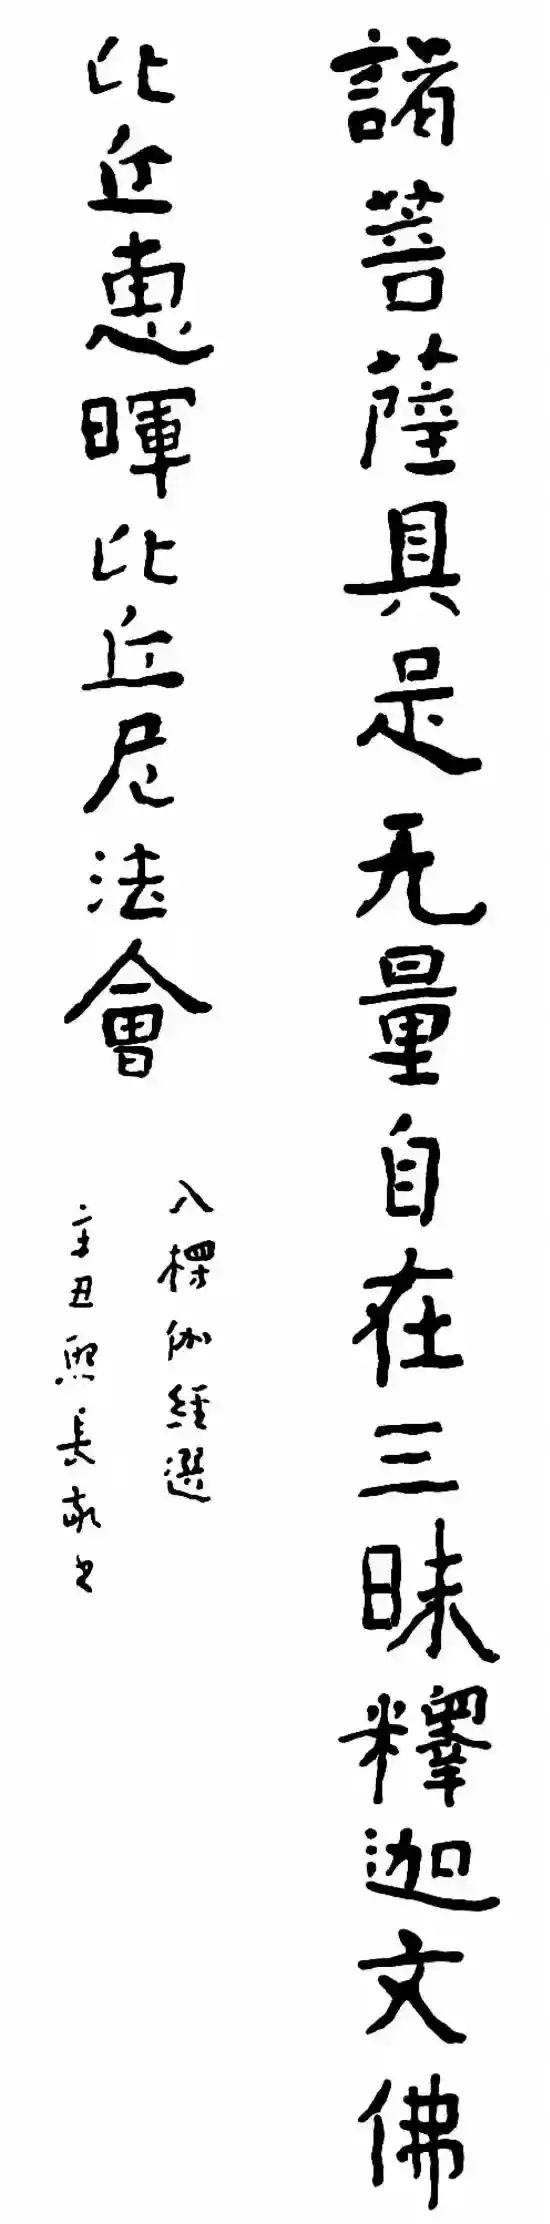 諸菩薩具是无量自在三昧釋迦文佛
比丘惠暉比丘尼法會
入楞伽經選
辛丑熙長敬書